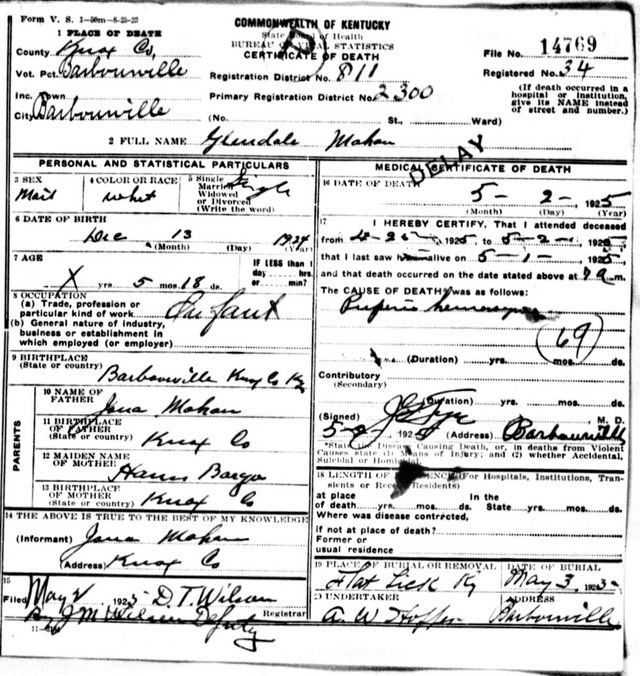 Form V. S. 1-50m-8-25-23
COMMONWEALTH OF KENTUCKY
State Board of Health
BUREAU OF VITAL STATISTICS
CERTIFICATE OF DEATH
1 PLACE OF DEATH
County Knox Co,
Vot. Pct. Barbourville
Inc. Town
City Barbourville
Registration District No. 811
Primary Registration District No. 2300
File No. 14769
Registered No. 34
(If death occurred in a hospital or institution, give its NAME instead of street and number.)
(No. St., Ward)
2 FULL NAME Glendale Mahan
DELAY
PERSONAL AND STATISTICAL PARTICULARS
3 SEX Mail
4 COLOR OR RACE whit
5 Single Married Widowed or Divorced (Write the word) Single
6 DATE OF BIRTH
Dec 13 1924
(Month) (Day) (Year)
7 AGE
X yrs. 5 mos. 18 ds.
IF LESS than 1 day hrs. or min.?
8 OCCUPATION
(a) Trade, profession or particular kind of work
(b) General nature of industry, business or establishment in which employed (or employer)
9 BIRTHPLACE
(State or country)
Barbourville Knox Co Ky
PARENTS
10 NAME OF FATHER
Mahan
11 BIRTHPLACE OF FATHER
(State or country)
Knox Co
12 MAIDEN NAME OF MOTHER
Bargo
13 BIRTHPLACE OF MOTHER
(State or country)
Knox Co
14 THE ABOVE IS TRUE TO THE BEST OF MY KNOWLEDGE
(Informant) Mahan
(Address) Knox Co
15
Filed May 2 1925 D. T. Wilson
Registrar
By J M Wilson Deputy
MEDICAL CERTIFICATE OF DEATH
16 DATE OF DEATH
5- 2- 1925
(Month) (Day) (Year)
17 I HEREBY CERTIFY, That I attended deceased
from 1925, to 5-2- 1925,
that I last saw alive on 5-1- 1925,
and that death occurred on the date stated above at m.
The CAUSE OF DEATH was as follows:
69
(Duration) yrs. mos. ds.
Contributory
(Secondary)
(Duration) yrs. mos. ds.
(Signed) M. D.
5- 192 (Address) Barbourville
*State the Disease Causing Death, or, in deaths from Violent Causes state (1) Means of Injury; and (2) whether Accidental, Suicidal or Homicidal
18 LENGTH OF RESIDENCE (For Hospitals, Institutions, Transients or Recent Residents)
at place of death yrs. mos. ds.
In the State yrs. mos. ds.
Where was disease contracted,
if not at place of death?
Former or usual residence
19 PLACE OF BURIAL OR REMOVAL
Flat Lick Ky
DATE OF BURIAL
May 3 192
20 UNDERTAKER
A. W. Hopper
ADDRESS
Barbourville